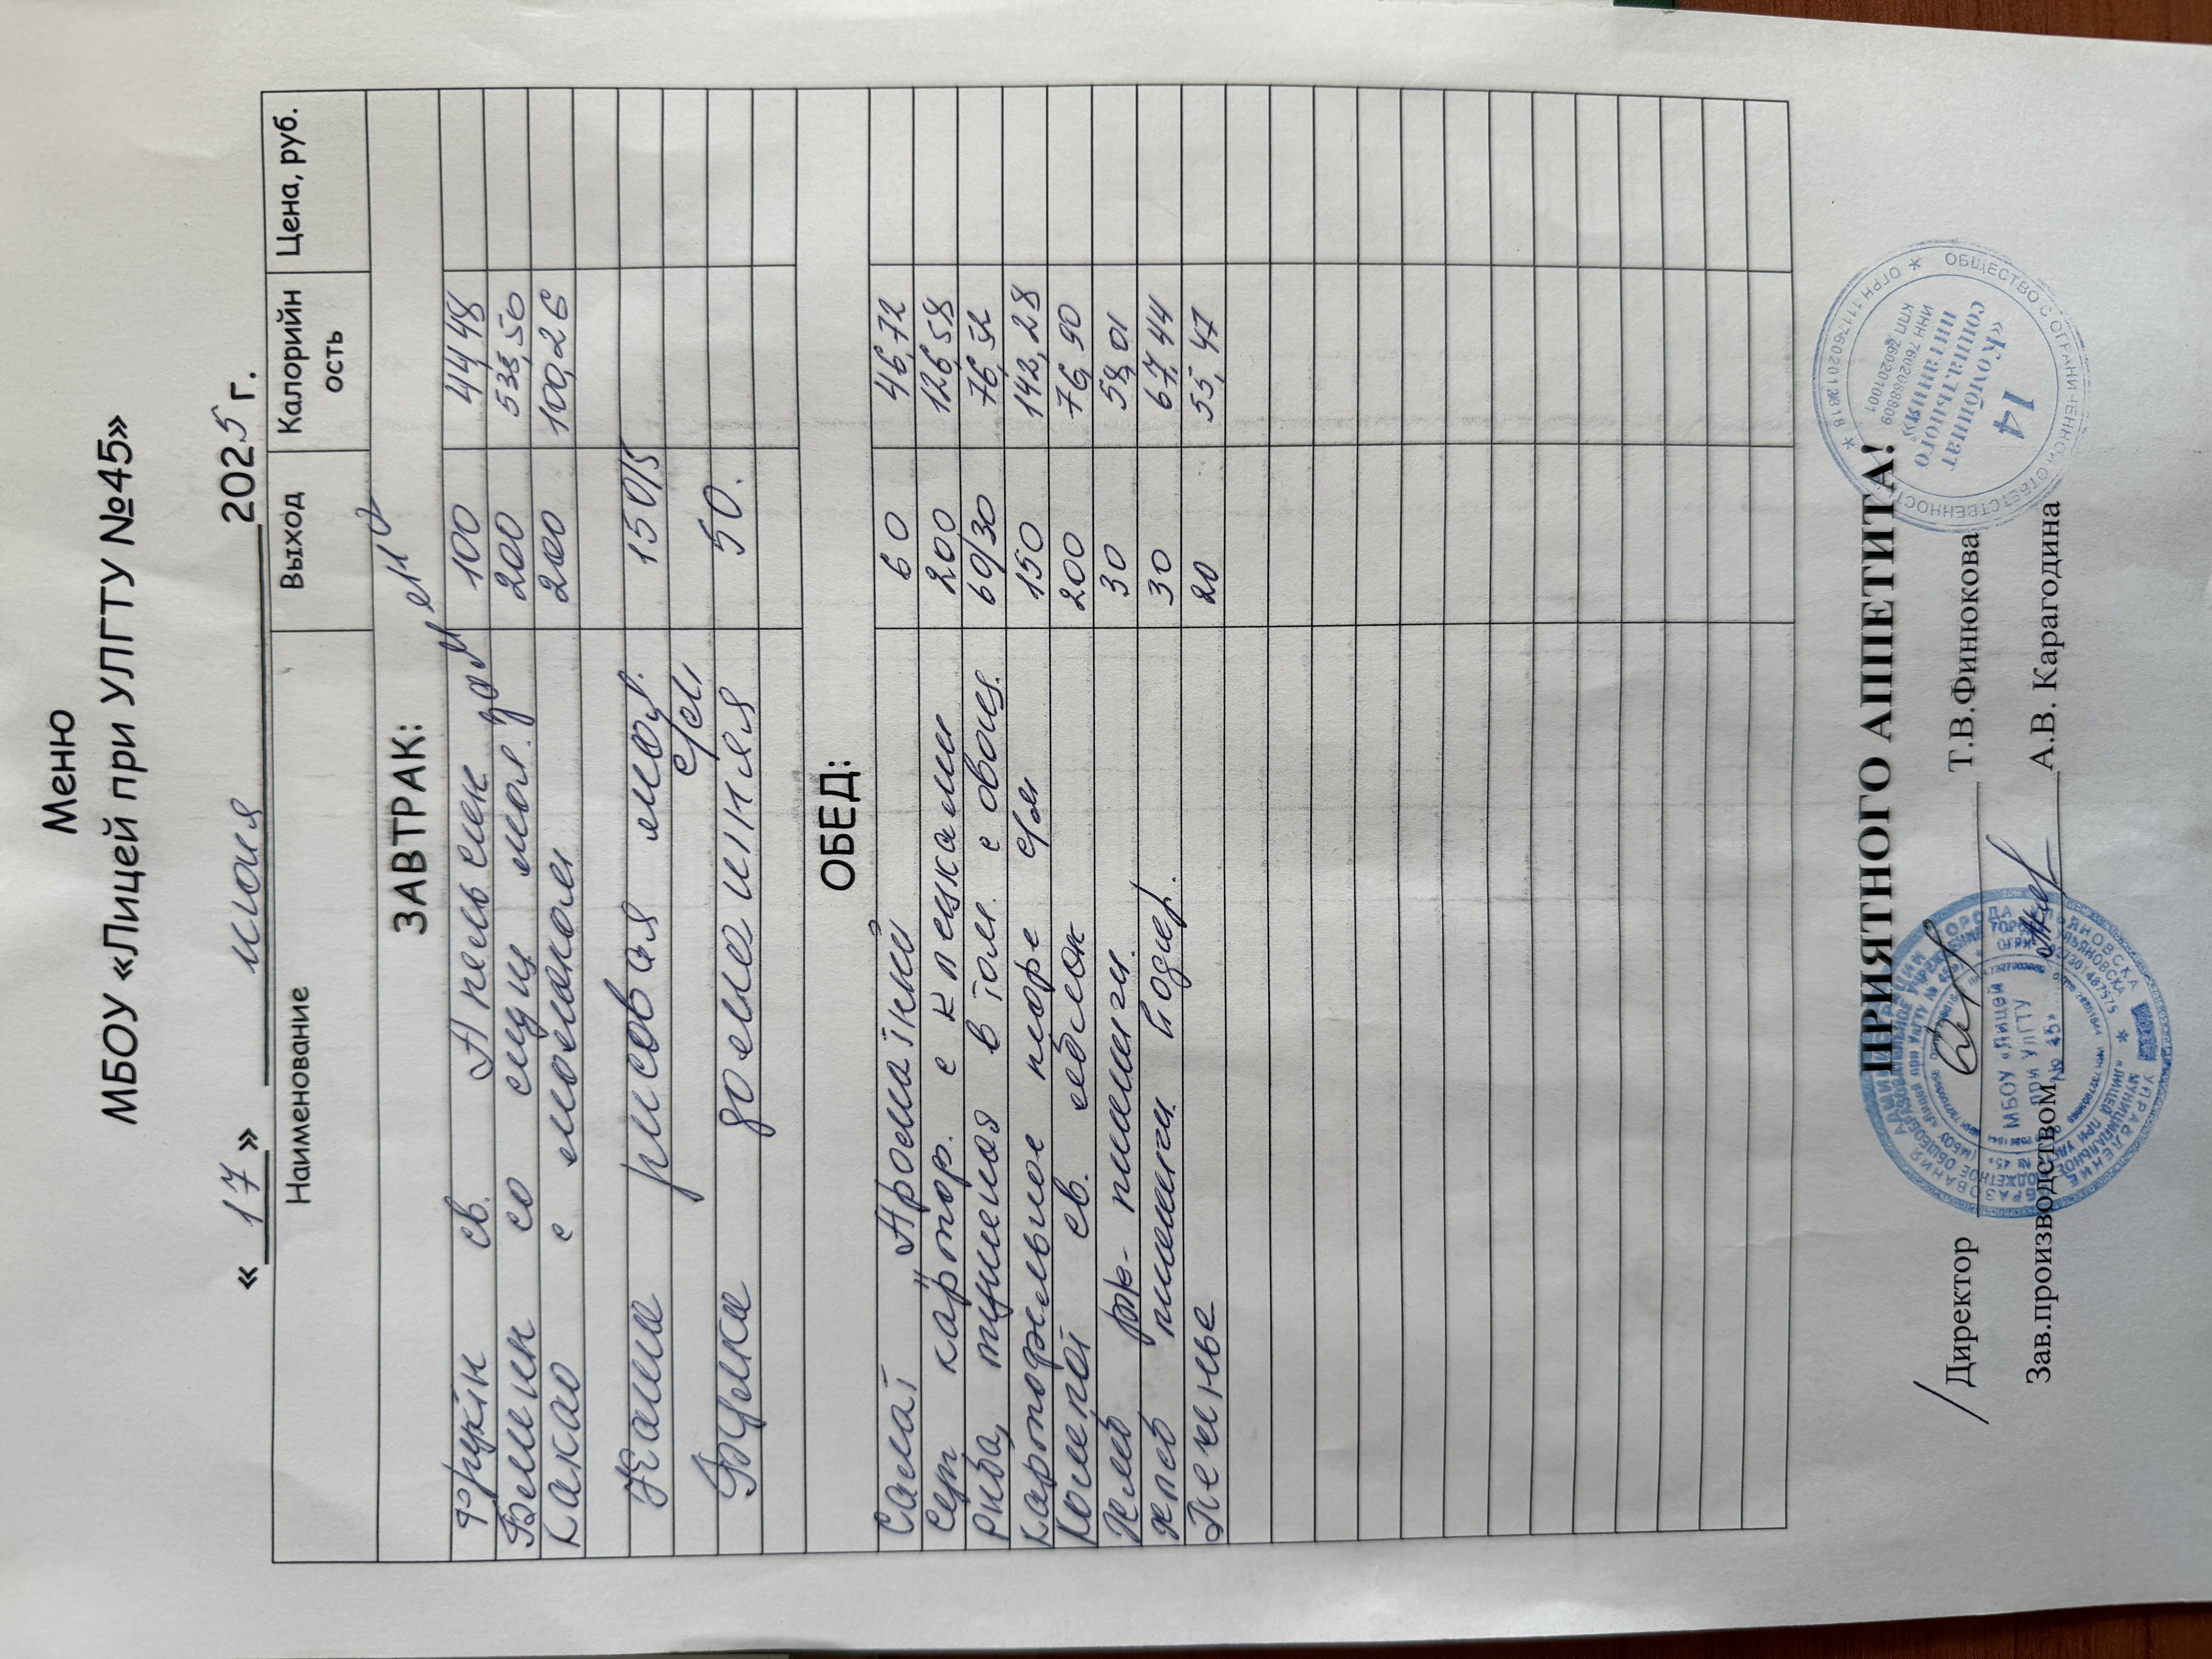 Меню
МБОУ «Лицей при УЛГТУ №45»
« 17 » июня 2025 г.
Наименование Выход Калорийность Цена, руб.
ЗАВТРАК:
Фрукты св. Апельсин 100 44,48
Блины со сгущ мол. 200 538,50
Какао с молоком 200 100,26
Каша рисовая мол. 150/5
с/сл
Булка домашняя 50.
ОБЕД:
Салат Ароматный 60 46,72
Суп картоф. с клецками 200 126,58
Рыба, тушеная в том. с овощ. 60/30 76,52
Картофельное пюре с/м 150 142,28
Компот св. яблок 200 76,90
Хлеб рж-пшенич. 30 58,01
хлеб пшенич. йодир. 30 67,44
Печенье 20 55,47
ПРИЯТНОГО АППЕТИТА!
Директор Т.В.Финюкова
Зав.производством А.В. Карагодина
МБОУ «Лицей при УлГТУ № 45»
ОБЩЕСТВО С ОГРАНИЧЕННОЙ ОТВЕТСТВЕННОСТЬЮ
«Комбинат социального питания»
ИНН 7602088809
КПП 760201001
14